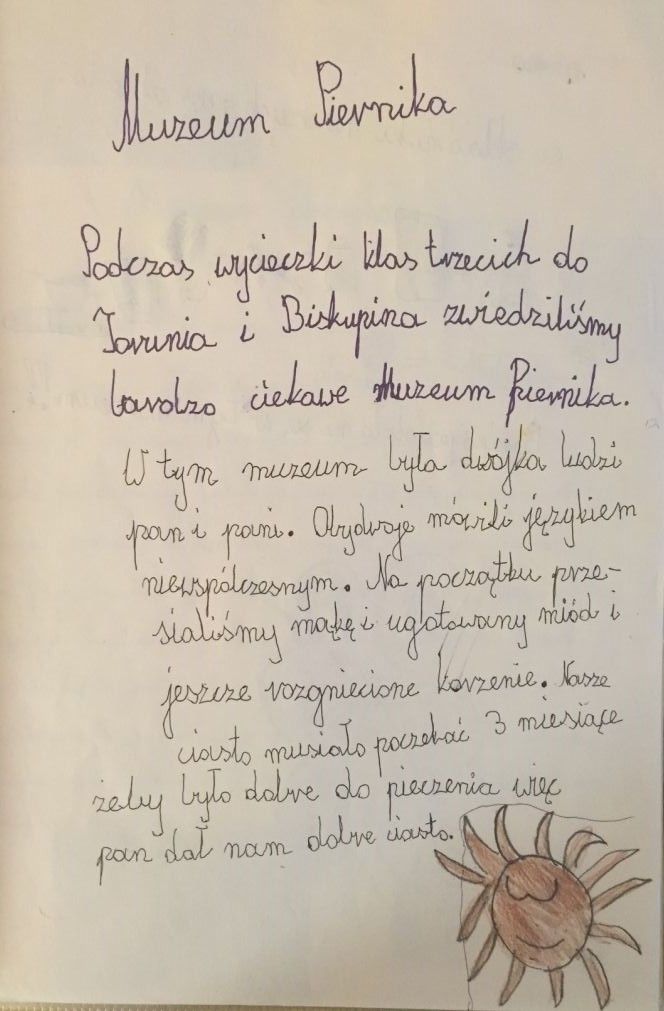 Muzeum Piernika
Podczas wycieczki klas trzecich do
Torunia i Biskupina zwiedziliśmy
bardzo ciekawe Muzeum Piernika.
W tym muzeum była dwójka ludzi
pan i pani. Obydwoje mówili językiem
niewspółczesnym. Na początku prze-
sialiśmy mąkę i ugotowany miód i
jeszcze rozgniecione korzenie. Nasze
ciasto musiało poczekać 3 miesiące
żeby było dobre do pieczenia więc
pan dał nam dobre ciasto.